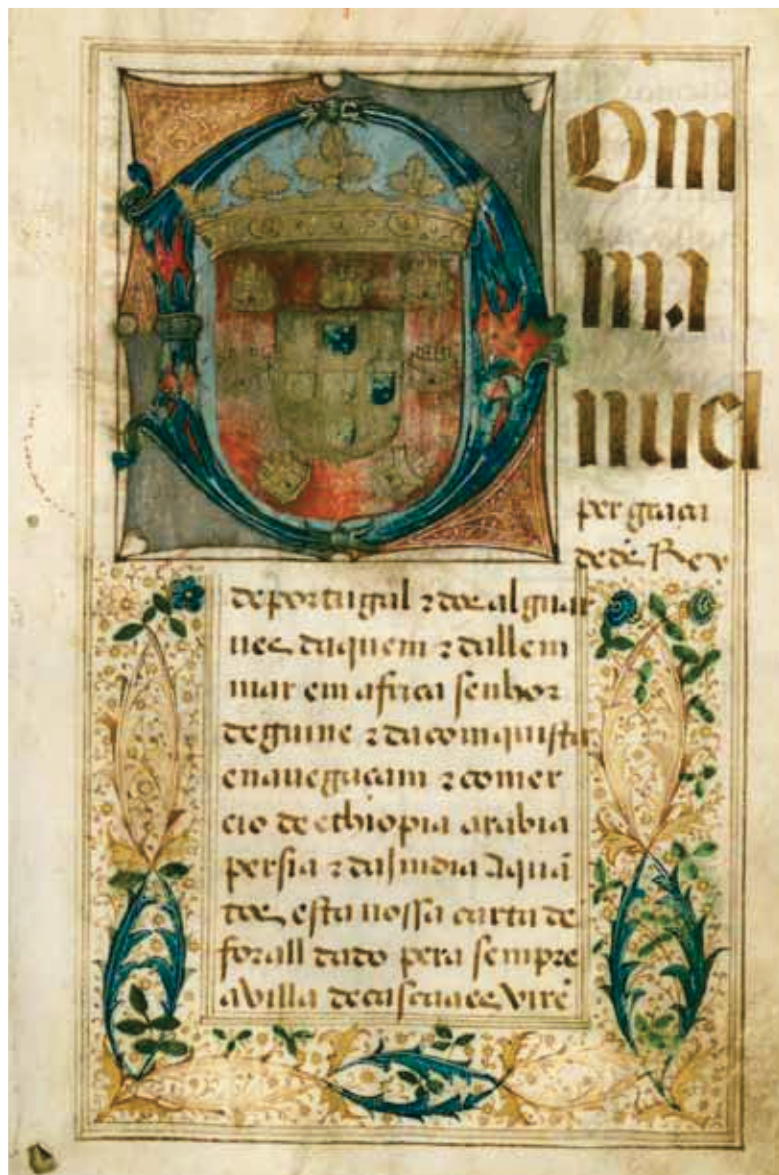 Dom
m.a
nuel
per graça
de ds Rey
de portugal ⁊ dos algar
ues daquem ⁊ dallem
mar em africa senhor
de guine ⁊ da comquista
enauegaçam ⁊ comer
cio de ethiopia arabia
persia ⁊ da India A quã
tos esta nossa carta de
forall dado pera sempre
a villa de cascaaes virẽ